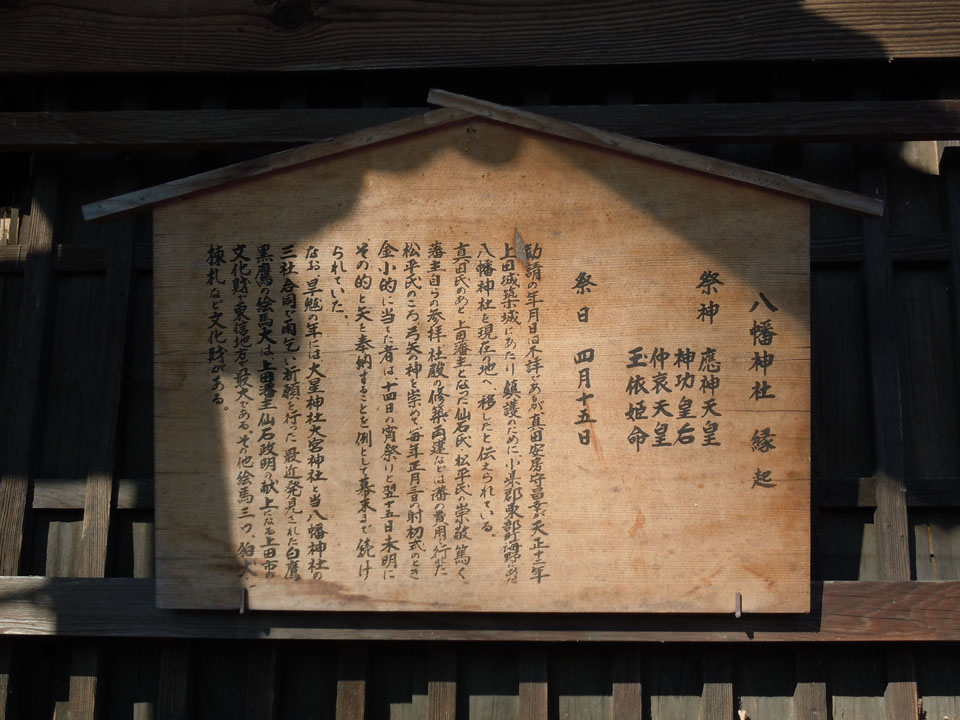 八幡神社 縁起
祭神 應神天皇
神功皇后
仲哀天皇
玉依姫命
祭日 四月十五日
勧請の年月日は不詳であるが真田安房守昌幸が天正十二年
上田城築城にあたり鎮護のために小県郡東部町海野にあった
八幡神社を現在の地へ移したと伝えられている。
真田氏のあと上田藩主となった仙石氏、松平氏の崇敬篤く
藩主自らの参拝社殿の修築再建などは藩の費用で行った
松平氏のころ弓矢の神を崇めて毎年正月二日の射初式のとき
金小的に当てた者は十四日の宵祭りと翌十五日未明に
その的と矢を奉納することを例として幕末まで続け
られていた。
なお、旱魃の年には大星神社大宮神社と当八幡神社の
三社合同で雨乞い祈願を行った 最近発見された白鷹
黒鷹の絵馬大は上田藩主仙石政明の献上になる上田市の
文化財で東信地方で最大である。その他絵馬三つ、狛犬
棟札など文化財がある。